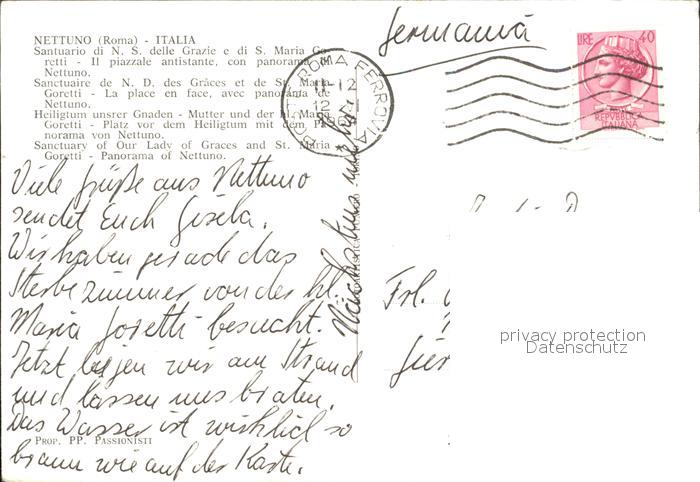 NETTUNO (Roma) - ITALIA
Santuario di N. S. delle Grazie e di S. Maria Go-
retti - Il piazzale antistante, con panorama
Nettuno.
Sanctuaire de N. D. des Grâces et de St. Maria
Goretti - La place en face, avec panorama de
Nettuno.
Heiligtum unsrer Gnaden - Mutter und der hl. Maria
Goretti - Platz vor dem Heiligtum mit dem Pa-
norama von Nettuno.
Sanctuary of Our Lady of Graces and St. Maria
Goretti - Panorama of Nettuno.
Viele Grüße aus Nettuno
sendet Euch Gisela.
Wir haben gerade das
Sterbezimmer von der hl.
Maria Goretti besucht.
Jetzt liegen wir am Strand
und lassen uns braten.
Das Wasser ist wirklich so
braun wie auf der Karte.
PROP. PP. PASSIONISTI
ROMA FERROVIA
Germania
LIRE 40
REPVBBLICA
ITALIANA
Frl.
privacy protection
Datenschutz